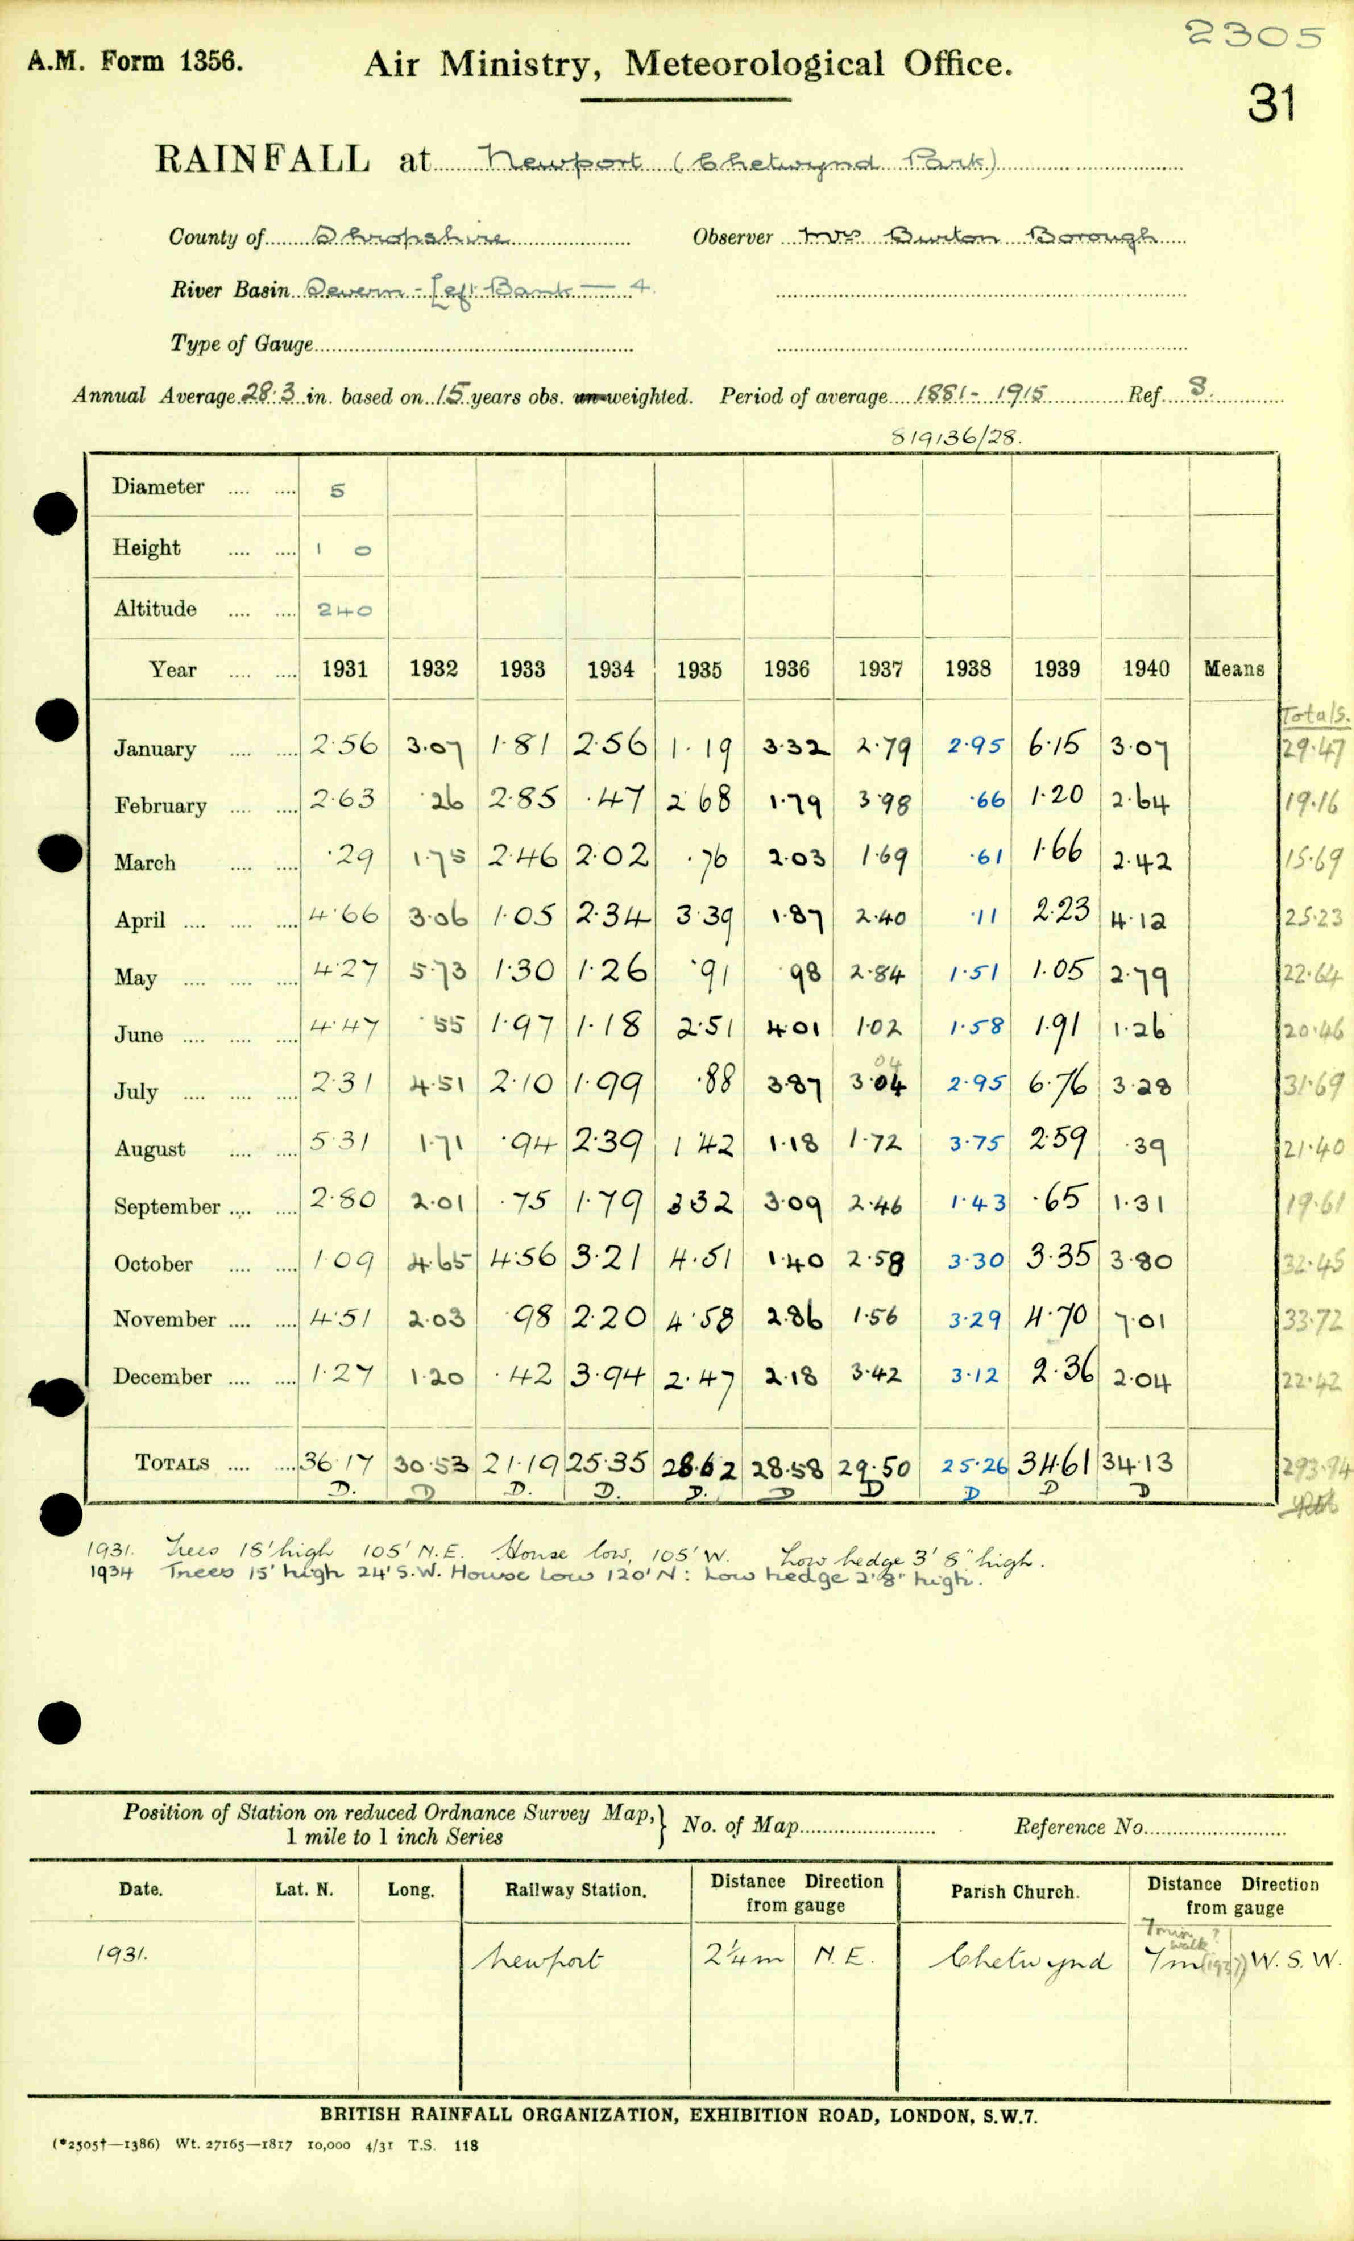 2305
A.M. Form 1356. Air Ministry, Meteorological Office.
31
RAINFALL at Newport (Chetwynd Park)
County of Shropshire Observer Mrs Burton Borough
River Basin Severn - Left Bank — 4.
Type of Gauge
Annual Average 28.3 in. based on 15 years obs. un-weighted. Period of average 1881 - 1915 Ref. 8.
819136/28.
Diameter .... .... 5
Height .... .... 1 0
Altitude .... .... 240
Year .... .... 1931 1932 1933 1934 1935 1936 1937 1938 1939 1940 Means
Totals.
January .... .... 2.56 3.07 1.81 2.56 1.19 3.32 2.79 2.95 6.15 3.07 29.47
February .... .... 2.63 .26 2.85 .47 2 68 1.79 3.98 .66 1.20 2.64 19.16
March .... .... .29 1.75 2.46 2.02 .76 2.03 1.69 .61 1.66 2.42 15.69
April .... .... .... 4.66 3.06 1.05 2.34 3.39 1.87 2.40 .11 2.23 4.12 25.23
May .... .... .... 4.27 5.73 1.30 1.26 .91 .98 2.84 1.51 1.05 2.79 22.64
June .... .... .... 4.47 .55 1.97 1.18 2.51 4.01 1.02 1.58 1.91 1.26 20.46
04
July .... .... .... 2.31 4.51 2.10 1.99 .88 3.87 3.04 2.95 6.76 3.28 31.69
August .... .... 5.31 1.71 .94 2.39 1.42 1.18 1.72 3.75 2.59 .39 21.40
September .... .... 2.80 2.01 .75 1.79 3 32 3.09 2.46 1.43 .65 1.31 19.61
October .... .... 1.09 4.65 4.56 3.21 4.51 1.40 2.58 3.30 3.35 3.80 32.45
November .... .... 4.51 2.03 .98 2.20 4.58 2.86 1.56 3.29 4.70 7.01 33.72
December .... .... 1.27 1.20 .42 3.94 2.47 2.18 3.42 3.12 2.36 2.04 22.42
TOTALS .... .... 36.17 30.53 21.19 25.35 28.62 28.58 29.50 25.26 34.61 34.13 293.94
D. D D. D. D. D D D D D
1931. Trees 18' high 105' N.E. House low, 105' W. Low hedge 3' 8" high.
1934 Trees 15' high 24' S.W. House Low 120' N: Low hedge 2' 8" high.
Position of Station on reduced Ordnance Survey Map, 1 mile to 1 inch Series } No. of Map Reference No.
Date. Lat. N. Long. Railway Station. Distance Direction from gauge Parish Church. Distance Direction from gauge
7 min walk ?
1931. Newport 2¼m N.E. Chetwynd 7m (1937) W.S.W.
BRITISH RAINFALL ORGANIZATION, EXHIBITION ROAD, LONDON, S.W.7.
(*2505†—1386) Wt. 27165—1817 10,000 4/31 T.S. 118